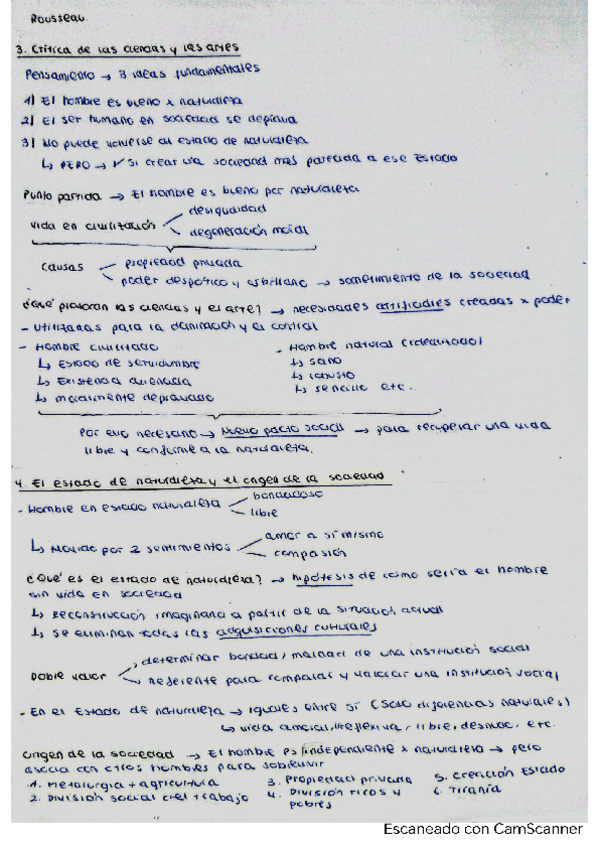 Rousseau
3. Crítica de las ciencias y las artes
Pensamiento → 3 ideas fundamentales
1) El hombre es bueno x naturaleza
2) El ser humano en sociedad se deprava
3) No puede volverse al estado de naturaleza
↳ PERO → ✓ si crear una sociedad más parecida a ese Estado
Punto partida → El hombre es bueno por naturaleza
Vida en civilización
desigualdad
degeneración moral
Causas
propiedad privada
poder despótico y arbitrario → sometimiento de la sociedad
¿Qué provocan las ciencias y el arte? → necesidades artificiales creadas x poder
- Utilizadas para la dominación y el control
- Hombre civilizado
↳ Estado de servidumbre
↳ Existencia alienada
↳ moralmente depravado
- Hombre natural (idealizado)
↳ sano
↳ robusto
↳ sencillo etc.
Por ello necesario → Nuevo pacto social → para recuperar una vida
libre y conforme a la naturaleza.
4. El estado de naturaleza y el origen de la sociedad
- Hombre en estado naturaleza
bondadoso
libre
↳ Movido por 2 sentimientos
amor a sí mismo
compasión
¿Qué es el estado de naturaleza? → hipótesis de como sería el hombre
sin vida en sociedad
↳ Reconstrucción imaginaria a partir de la situación actual
↳ Se eliminan todas las adquisiciones culturales
Doble valor
determinar bondad/maldad de una institución social
Referente para comparar y valorar una institución social
- En el Estado de naturaleza → iguales entre sí (Solo diferencias naturales)
↳ vida amoral, irreflexiva, libre, etc.
Origen de la sociedad → El hombre es independiente x naturaleza → pero
asocia con otros hombres para sobrevivir
1. Metalurgia + agricultura
2. División social del trabajo
3. Propiedad privada
4. División ricos y
pobres
5. Creación Estado
6. Tiranía
Escaneado con CamScanner